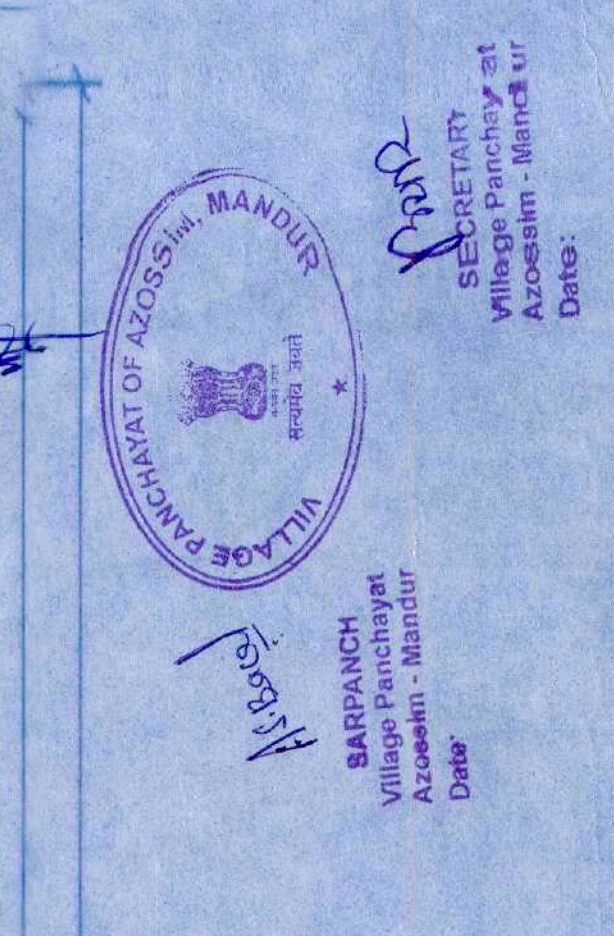 VILLAGE PANCHAYAT OF AZOSSIM, MANDUR
सत्यमेव जयते
SARPANCH
Village Panchayat
Azossim - Mandur
Date:
SECRETARY
Village Panchayat
Azossim - Mandur
Date: